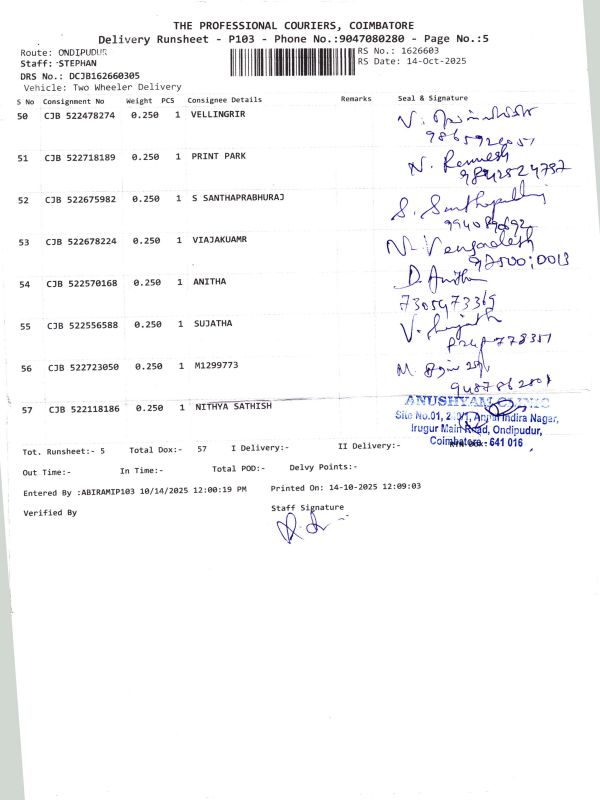 THE PROFESSIONAL COURIERS, COIMBATORE
Delivery Runsheet - P103 - Phone No.:9047080280 - Page No.:5
Route: ONDIPUDUR
RS No.: 1626603
Staff: STEPHAN
RS Date: 14-Oct-2025
DRS No.: DCJB162660305
Vehicle: Two Wheeler Delivery
S No Consignment No Weight PCS Consignee Details Remarks Seal & Signature
50 CJB 522478274 0.250 1 VELLINGRIR
51 CJB 522718189 0.250 1 PRINT PARK N. Ramesh
9842524797
52 CJB 522675982 0.250 1 S SANTHAPRABHURAJ
53 CJB 522678224 0.250 1 VIAJAKUAMR
54 CJB 522570168 0.250 1 ANITHA D. Anitha
7305973369
55 CJB 522556588 0.250 1 SUJATHA
56 CJB 522723050 0.250 1 M1299773
57 CJB 522118186 0.250 1 NITHYA SATHISH
ANUSHYAM CLINIC
Site No.01, Indira Nagar,
Irugur Main Road, Ondipudur,
Coimbatore - 641 016
Tot. Runsheet:- 5 Total Dox:- 57 I Delivery:- II Delivery:-
Out Time:- In Time:- Total POD:- Delvy Points:-
Entered By :ABIRAMIP103 10/14/2025 12:00:19 PM Printed On: 14-10-2025 12:09:03
Verified By Staff Signature